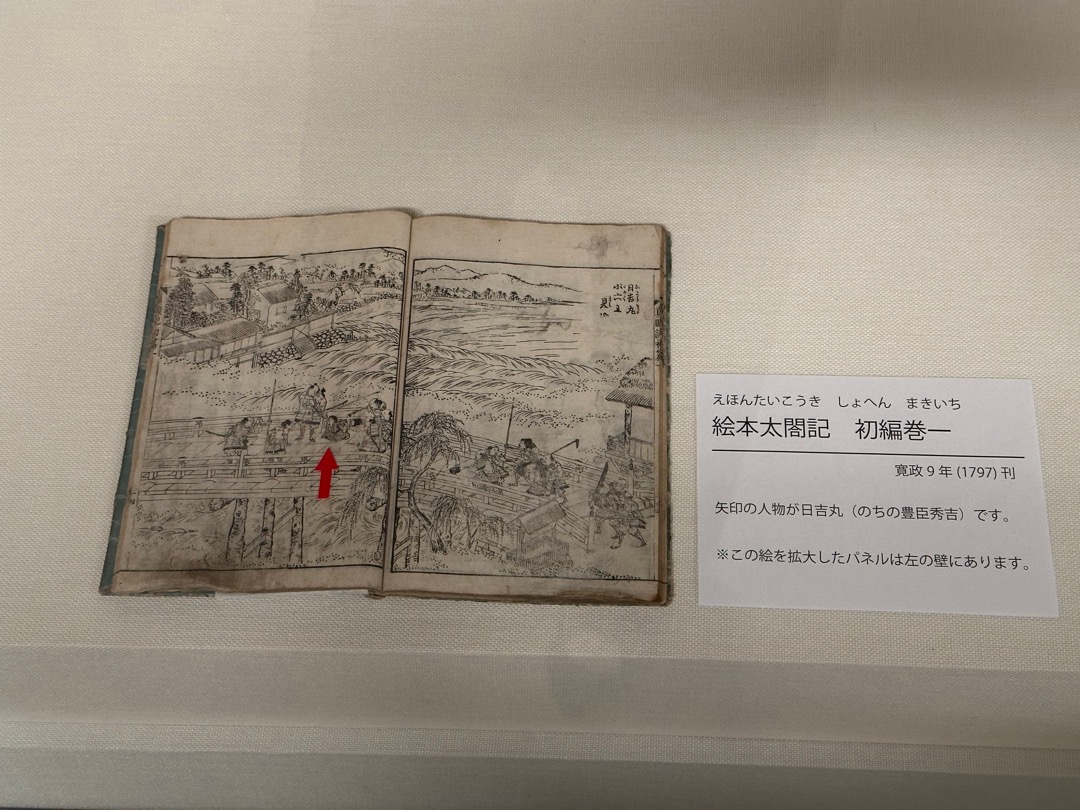 日吉丸
小六正
見ゆ
えほんたいこうき　しょへん　まきいち
絵本太閤記　初編巻一
寛政９年 (1797) 刊
矢印の人物が日吉丸（のちの豊臣秀吉）です。
※この絵を拡大したパネルは左の壁にあります。